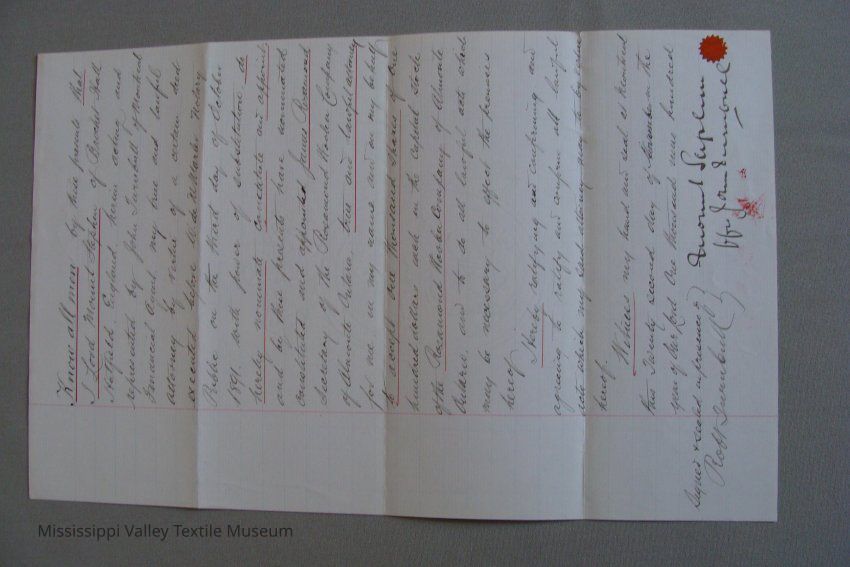 Know all men by these presents that
I Lord Mount Stephen of Brocket Hall
Hatfield, England herein acting and
represented by John Turnbull of Montreal
Financial Agent, my true and lawful
attorney by virtue of a certain deed
executed before W. de M. Marler Notary
Public on the third day of October
1891, with power of substitution do
hereby nominate constitute and appoint
and by these presents have nominated
constituted and appointed James Rosamond
Secretary of the Rosamond Woolen Company
of Almonte Ontario, true and lawful attorney
for me, in my name and on my behalf
to accept one thousand shares of one
hundred dollars each in the capital stock
of the Rosamond Woolen Company of Almonte
Ontario, and to do all lawful acts which
may be necessary to effect the premises
hereof Hereby ratifying and confirming and
agreeing to ratify and confirm all lawful
acts which my said attorney may do by virtue
hereof.
Witness my hand and seal at Montreal
this Twenty second day of in the
year of Our Lord One thousand nine hundred
Signed & sealed in presence of
Mount Stephen
Robt Turnbull
John Turnbull
Mississippi Valley Textile Museum